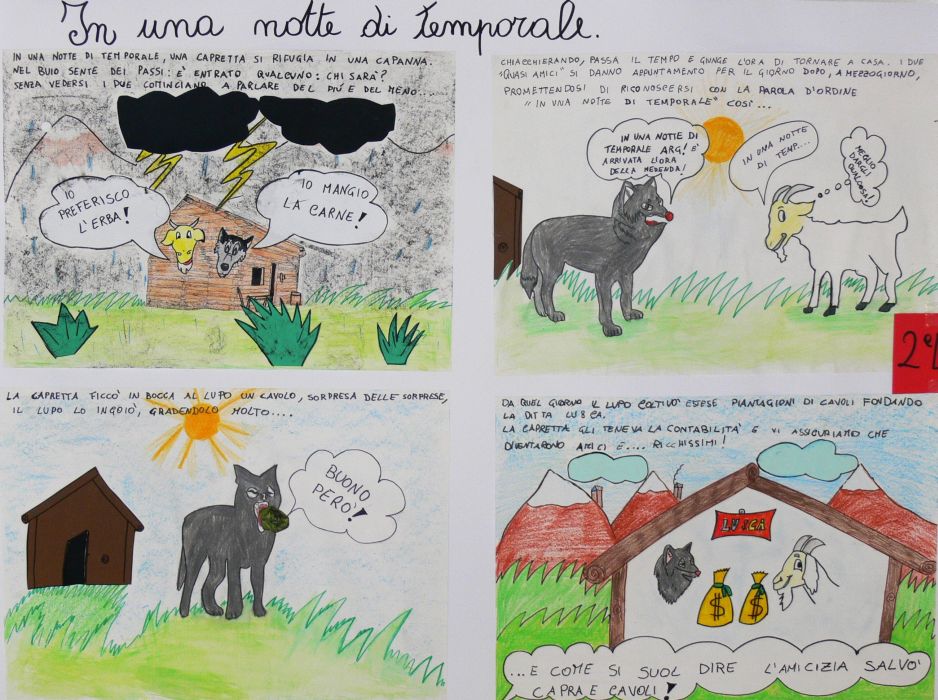 In una notte di temporale.
IN UNA NOTTE DI TEMPORALE, UNA CAPRETTA SI RIFUGIA IN UNA CAPANNA.
NEL BUIO SENTE DEI PASSI: E' ENTRATO QUALCUNO: CHI SARA'?
SENZA VEDERSI I DUE COMINCIANO A PARLARE DEL PIÚ E DEL MENO....
IO
PREFERISCO
L'ERBA!
IO MANGIO
LA CARNE!
CHIACCHIERANDO, PASSA IL TEMPO E GIUNGE L'ORA DI TORNARE A CASA. I DUE
"QUASI AMICI" SI DANNO APPUNTAMENTO PER IL GIORNO DOPO, A MEZZOGIORNO,
PROMETTENDOSI DI RICONOSCERSI CON LA PAROLA D'ORDINE
"IN UNA NOTTE DI TEMPORALE" COSI'...
IN UNA NOTTE DI
TEMPORALE ARG! E'
ARRIVATA L'ORA
DELLA MERENDA!
IN UNA NOTTE
DI TEMP....
MEGLIO
DARGLI
QUALCOSA!
2ª
LA CAPRETTA FICCÒ IN BOCCA AL LUPO UN CAVOLO, SORPRESA DELLE SORPRESE,
IL LUPO LO INGOIÒ, GRADENDOLO MOLTO....
BUONO
PERO'!
DA QUEL GIORNO IL LUPO COLTIVO' ESTESE PIANTAGIONI DI CAVOLI FONDANDO
LA DITTA LU&CA.
LA CAPRETTA GLI TENEVA LA CONTABILITA' E VI ASSICURIAMO CHE
DIVENTARONO AMICI E.... RICCHISSIMI!
LU&CA
$ $
...E COME SI SUOL DIRE L'AMICIZIA SALVO'
CAPRA E CAVOLI!